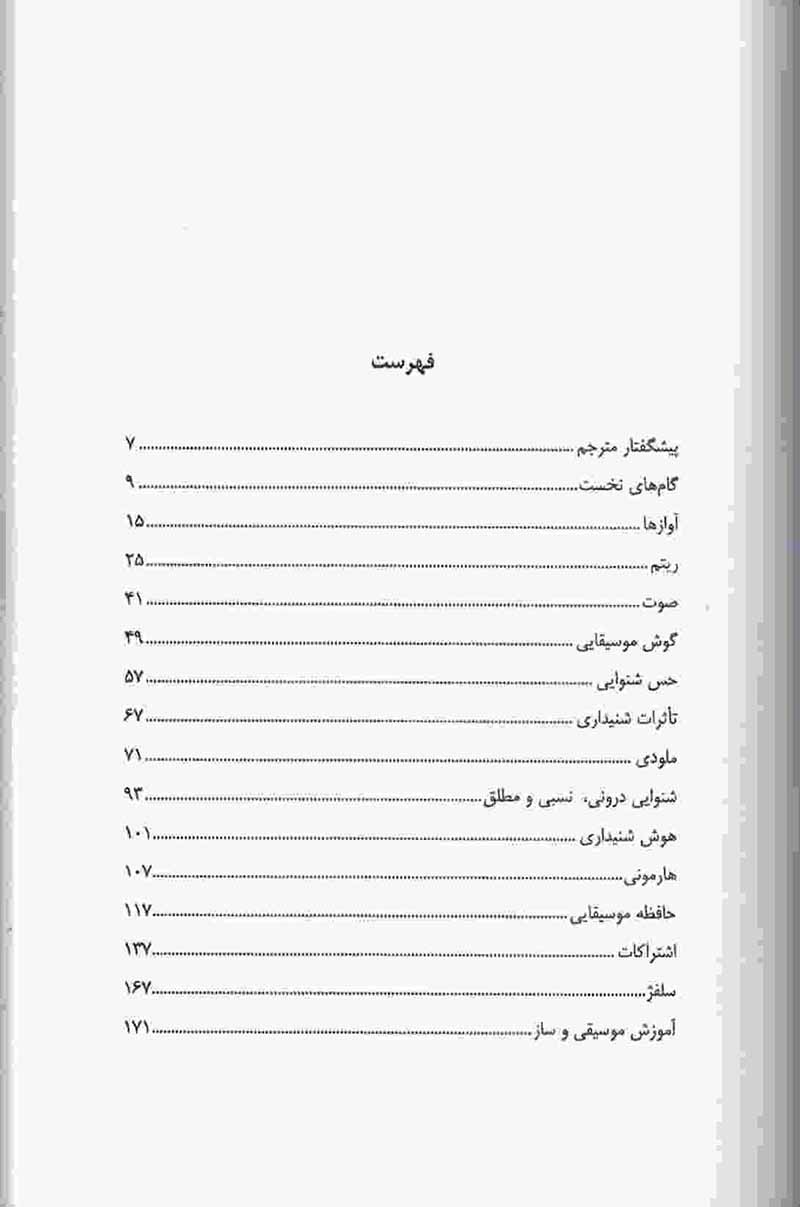 فهرست
پیشگفتار مترجم ........ ۷
گام‌های نخست ........ ۹
آوازها ........ ۱۵
ریتم ........ ۲۵
صوت ........ ۴۱
گوش موسیقایی ........ ۴۹
حس شنوایی ........ ۵۷
تأثرات شنیداری ........ ۶۷
ملودی ........ ۷۱
شنوایی درونی، نسبی و مطلق ........ ۹۳
هوش شنیداری ........ ۱۰۱
هارمونی ........ ۱۰۷
حافظه موسیقایی ........ ۱۱۷
اشتراکات ........ ۱۳۷
سلفژ ........ ۱۶۷
آموزش موسیقی و ساز ........ ۱۷۱